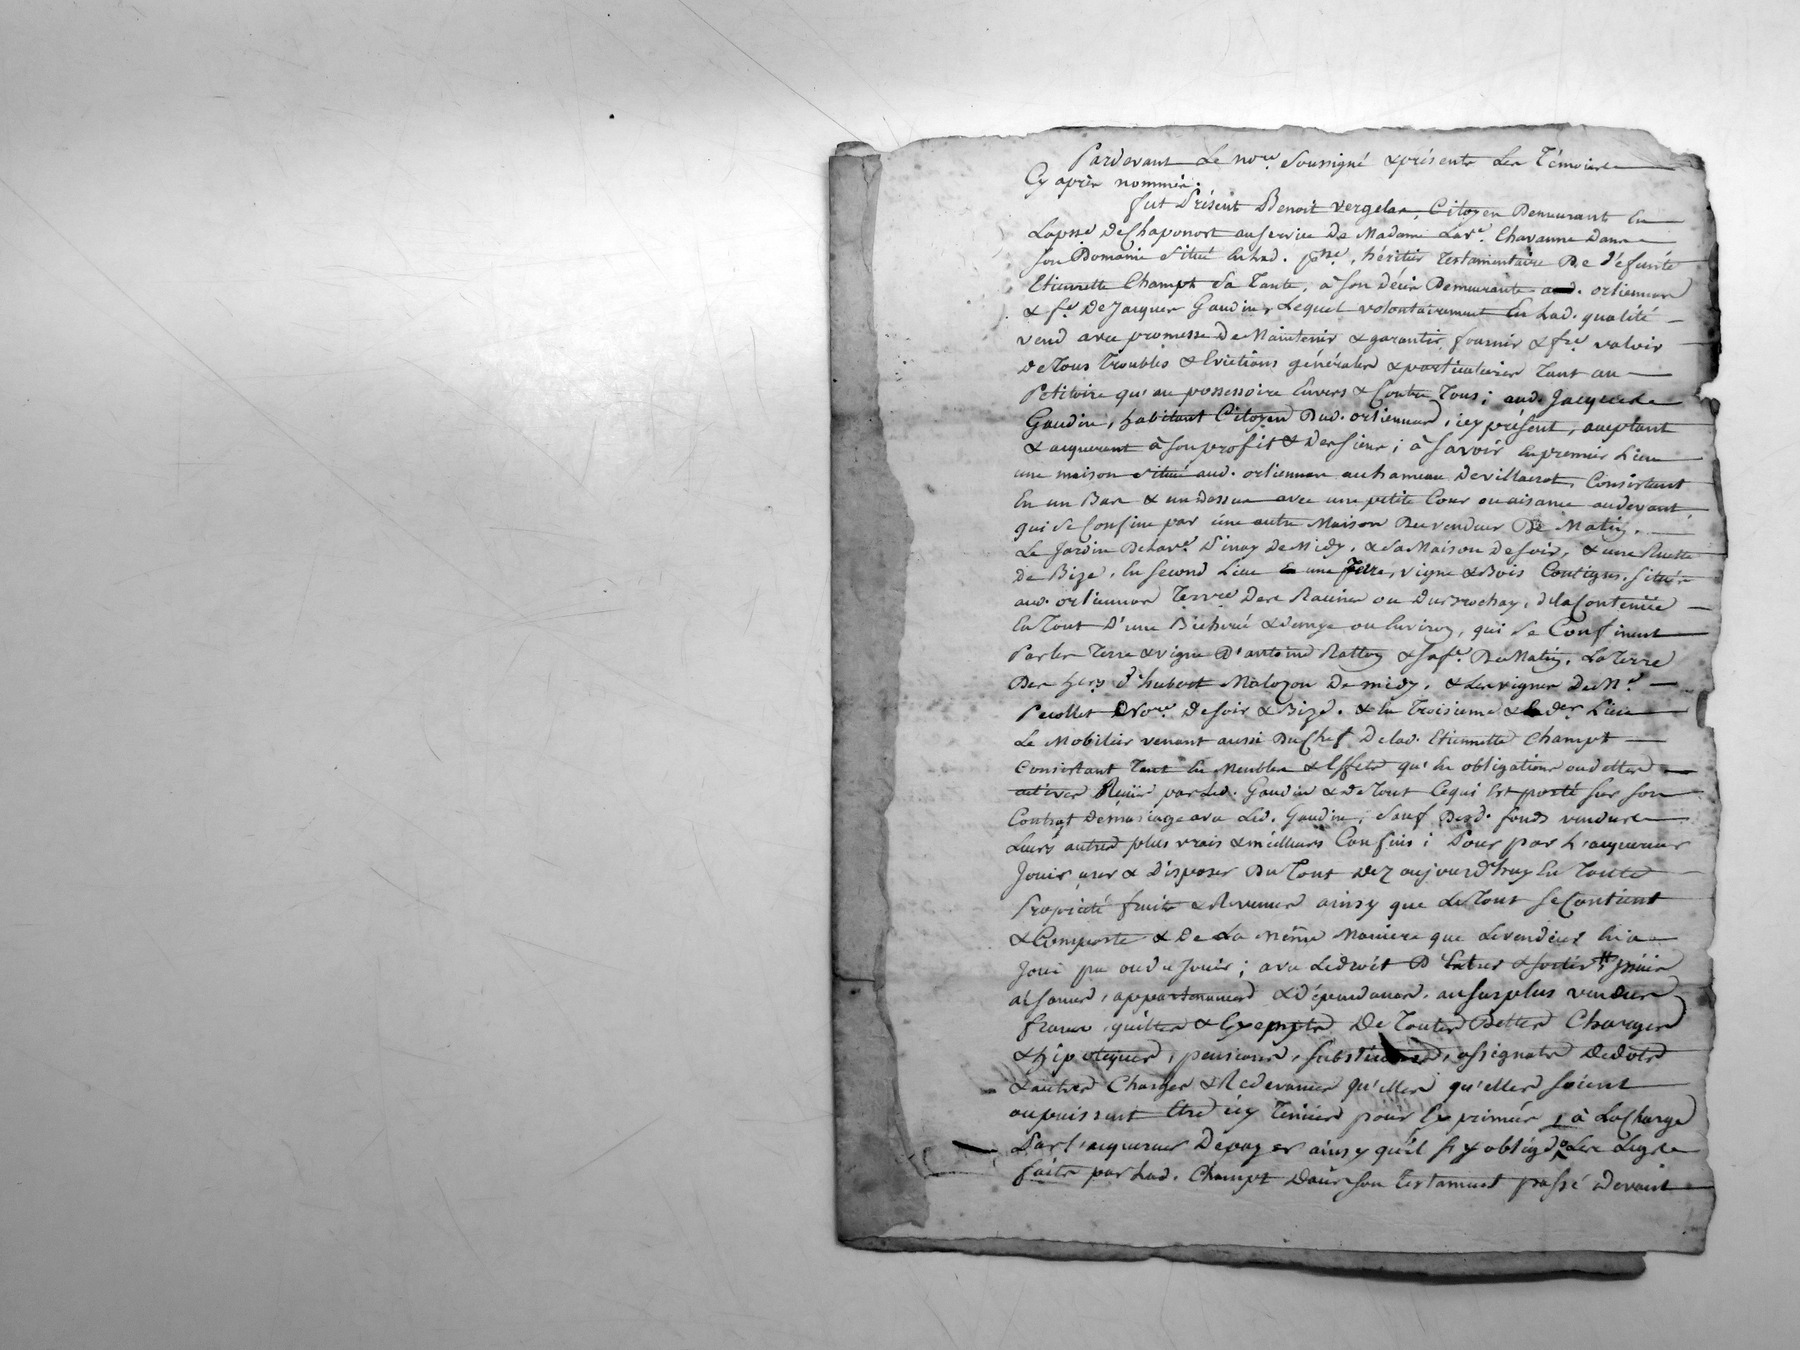 Pardevant Le no.re Soussigné & présents Les Témoins
Cy après nommés.
fut Présent Benoit Vergelas, Citoyen Demeurant En
Laprse DeChaponost auservice De Madame Lav.e Chavanne Dans
Son Domaine situé En Lad. prse, héritier Testamentaire De Défunte
Etiennette Champt Sa Tante, à Son décès Demeurante aud. orliennas
& f.e De Jacques Gaudin, Lequel volontairement En Lad. qualité
vend avec promesse De Maintenir & garantir, fournir & f.re valoir
De Tous Troubles & Evictions générales & particulieres Tant au
Petitoire qu'au possessoire Envers & Contre Tous; aud. Jacques
Gaudin, habitant Citoyen Dud. orliennas, icy présent, acceptant
& acquerant à Son profit & Des siens; à Savoir En premier Lieu
une maison située aud. orliennas au hameau De villacrot, Consistant
En un Bas & un Dessus avec une petite Cour ou aisance audevant
qui Se Confine par une autre Maison Du vendeur De Matin,
Le Jardin De Lav.e Pinay De Midy, & Sa Maison De Soir, & une Ruette
De Bize, En Second Lieu une Terre, vigne & Bois Contigus, Situés
aud. orliennas Terre Des Racines ou Dubrochay, De la Contenüe
En Tout D'une Bicherée & demye ou Environ, qui Se Confinent
Par Les Terre & vigne D'antoine Ratton & Sa f.e De Matin, La Terre
Des hers d'hubert Malozon De midy, & Les vignes De M.e
Pecollet No.re De Soir & Bize. & En Troisieme & der. Lieu
Le Mobilier venant aussi Du Chef De lad. Etiennette Champt
Consistant Tant En Meubles & Effets qu'En obligations ou dettes
Reçües par Led. Gaudin & De Tout Cequi Est porté Sur Son
Contrat De mariage avec Led. Gaudin, Sauf Desd. fonds vendus
Leurs autres plus vrais & meilleurs Confins; Pour par L'acquereur
Jouir, user & Disposer Du Tout Dez aujourd'huy En Toute
Propriété fruits & Revenus ainsy que Le Tout Se Contient
& Comporte & De La Même Maniere que Le vendeur En a
Joui pu ou du Jouir; avec Le droit D'Entrer & Sortir,
aisances, appartenances & Dépendances. au Surplus vendües
franc, quittes & Exemptes De Toutes Dettes Charges
& hipoteques, pensions, Substitutions, assignats De dots
& autres Charges & Redevances qu'elles qu'elles Soient
ou puissent Etre icy Tenües pour Exprimées à La Charge
Par L'acquereur De payer ainsy qu'il S'y oblige Les Legs
faits par Lad. Champt Dans Son Testament passé Devant